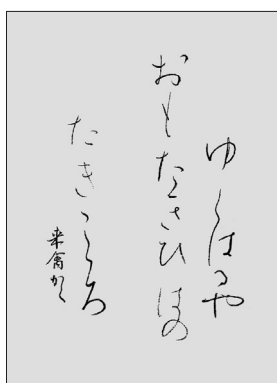 ゆくはるや
おもたきひはの
たきこゝろ
来禽かく